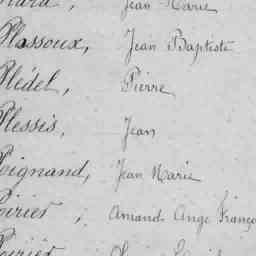 Jean Marie
Plassoux, Jean Baptiste
Plédel, Pierre
Plessis, Jean
Poignand, Jean Marie
Poirier, Amand Ange Franço
Poirier